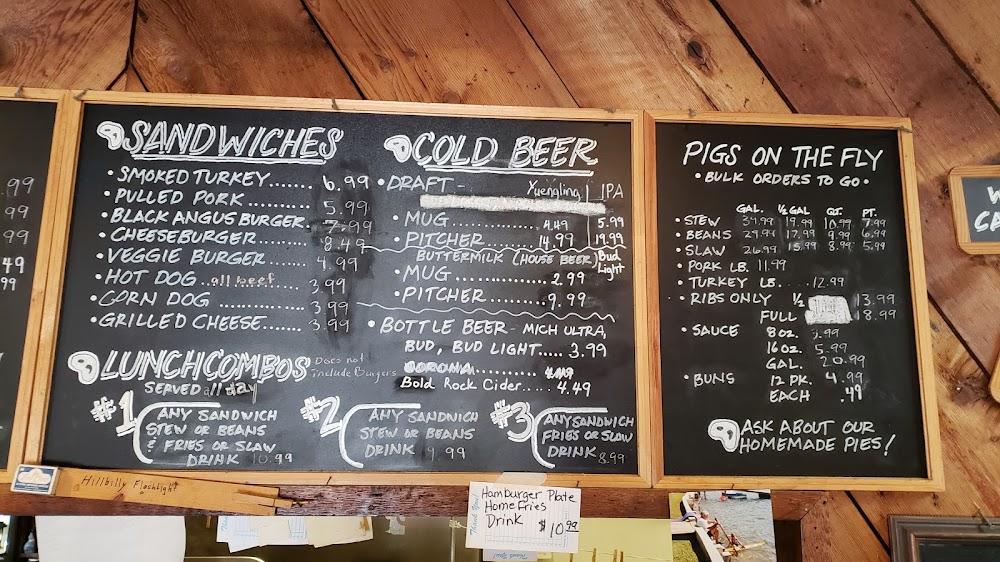 .99
99
99
49
99
SANDWICHES
• SMOKED TURKEY....... 6.99
• PULLED PORK.......... 5.99
• BLACK ANGUS BURGER. 7.99
• CHEESEBURGER......... 8.49
• VEGGIE BURGER....... 4.99
• HOT DOG ..all beef.. 3.99
• CORN DOG ............ 3.99
• GRILLED CHEESE...... 3.99
LUNCHCOMBOS
Does not
include Burgers
SERVED all day
#1
ANY SANDWICH
STEW OR BEANS
& FRIES OR SLAW
DRINK 10.99
#2
ANY SANDWICH
STEW OR BEANS
DRINK 9.99
#3
ANY SANDWICH
FRIES OR SLAW
DRINK 8.99
COLD BEER
• DRAFT - Yuengling IPA
• MUG............ 4.49 5.99
• PITCHER........ 14.99 19.99
BUTTERMILK (HOUSE BEER) Bud
Light
• MUG............ 2.99
• PITCHER....... 9.99
• BOTTLE BEER - MICH ULTRA,
BUD, BUD LIGHT..... 3.99
Bold Rock Cider..... 4.49
PIGS ON THE FLY
• BULK ORDERS TO GO •
GAL. ½ GAL. QT. PT.
• STEW 34.99 19.99 10.99 7.99
• BEANS 29.99 17.99 9.99 6.99
• SLAW 26.99 15.99 8.99 5.99
• PORK LB. 11.99
• TURKEY LB. .. 12.99
• RIBS ONLY ½ 13.99
FULL 18.99
• SAUCE 8 oz. 3.99
16 oz. 5.99
GAL. 20.99
• BUNS 12 PK. 4.99
EACH .49
ASK ABOUT OUR
HOMEMADE PIES!
Hillbilly Flashlight
Hamburger Plate
Home Fries
Drink $10.99
Thank You!